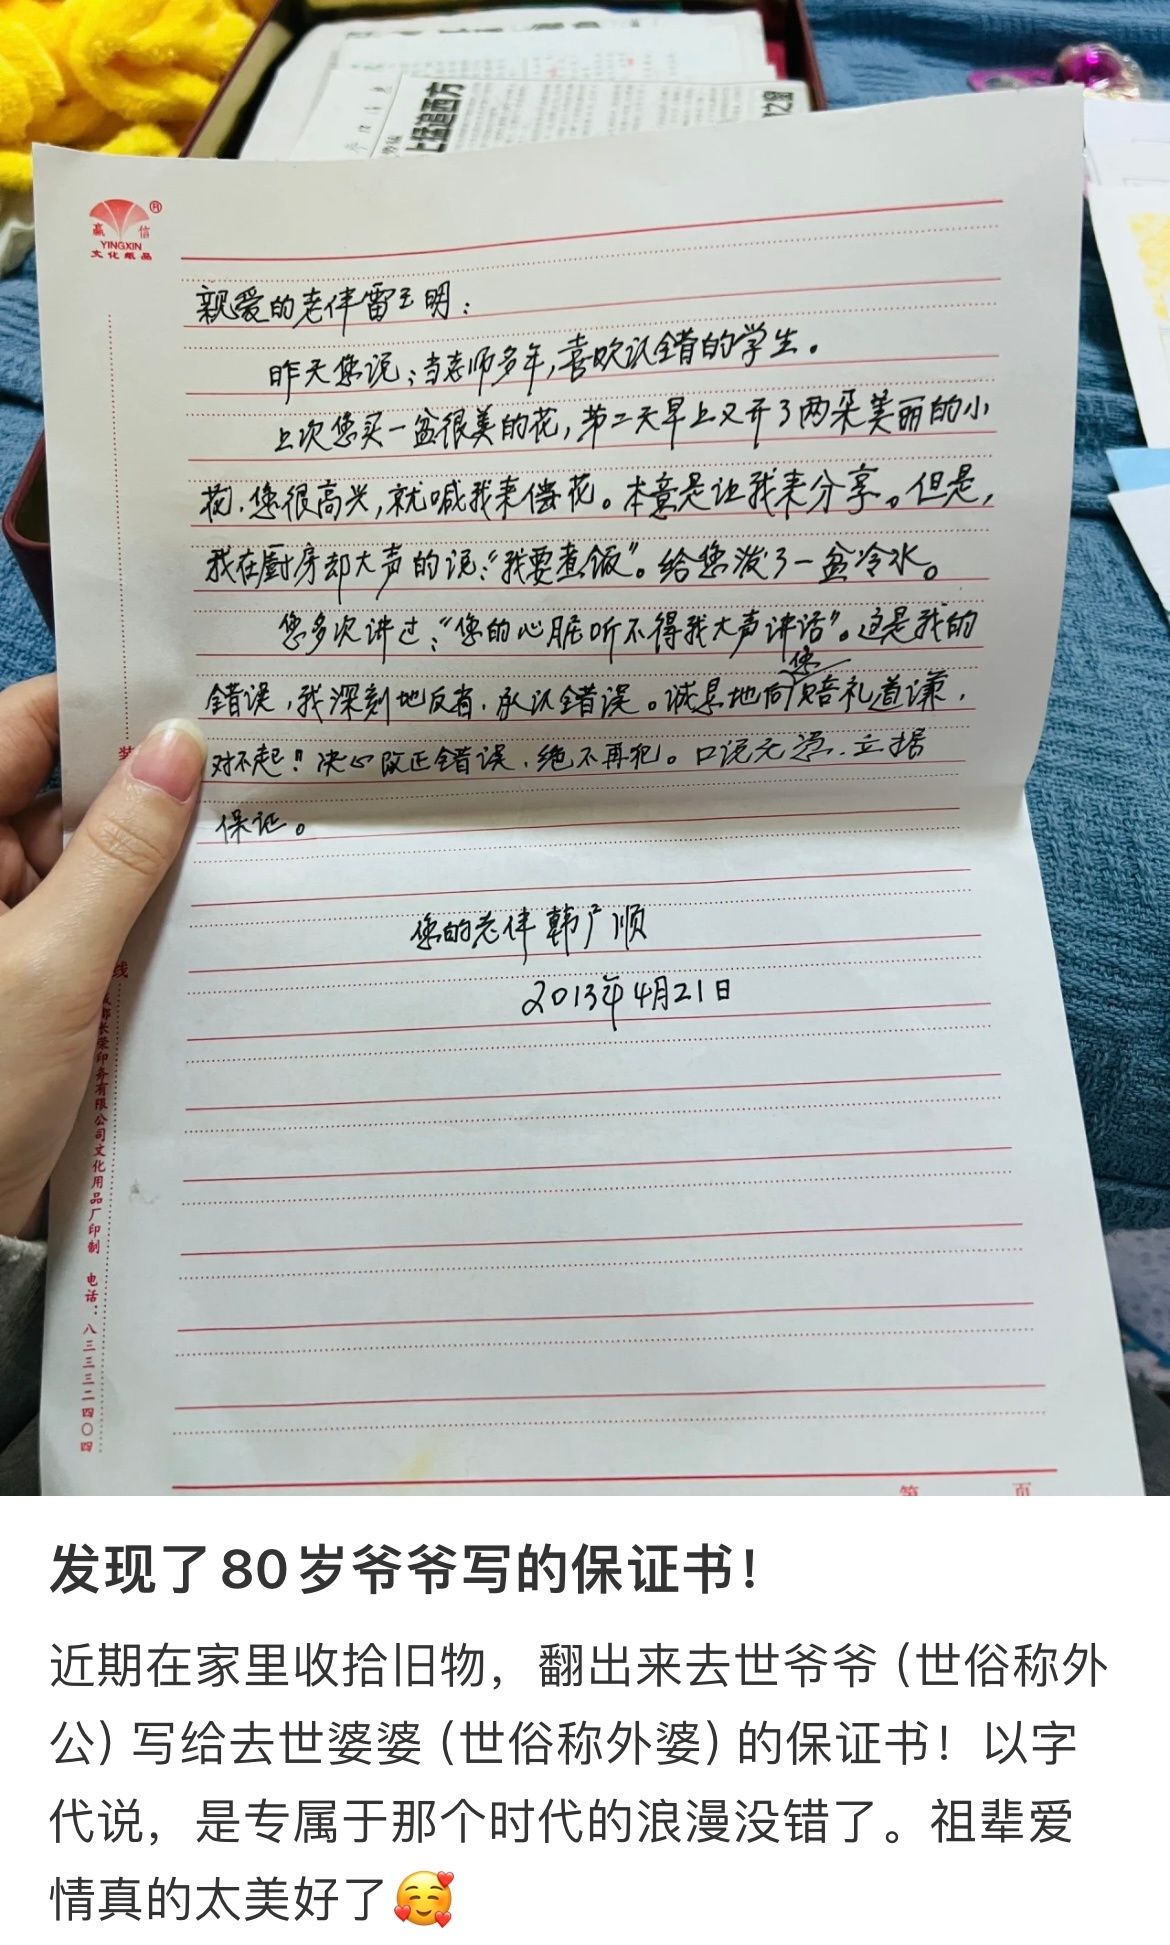 上猛追西方
赢 信
YINGXIN
文化纸品
亲爱的老伴雷玉明：
昨天您说；当老师多年，喜欢认错的学生。
上次您买一盆很美的花，第二天早上又开了两朵美丽的小
花，您很高兴，就喊我来偿花。本意是让我来分享。但是，
我在厨房却大声的说：“我要煮饭”。给您泼了一盆冷水。
您多次讲过：“您的心脏听不得我大声讲话”。这是我的
错误，我深刻地反省，承认错误。诚恳地向您赔礼道谦，
对不起！决心改正错误，绝不再犯。口说无凭，立据
保证。
您的老伴 韩广顺
2013年4月21日
装
线
成都长荣印务有限公司文化用品厂印制 电话：八三三三二四〇四
第 页
发现了80岁爷爷写的保证书！
近期在家里收拾旧物，翻出来去世爷爷（世俗称外
公）写给去世婆婆（世俗称外婆）的保证书！以字
代说，是专属于那个时代的浪漫没错了。祖辈爱
情真的太美好了🥰